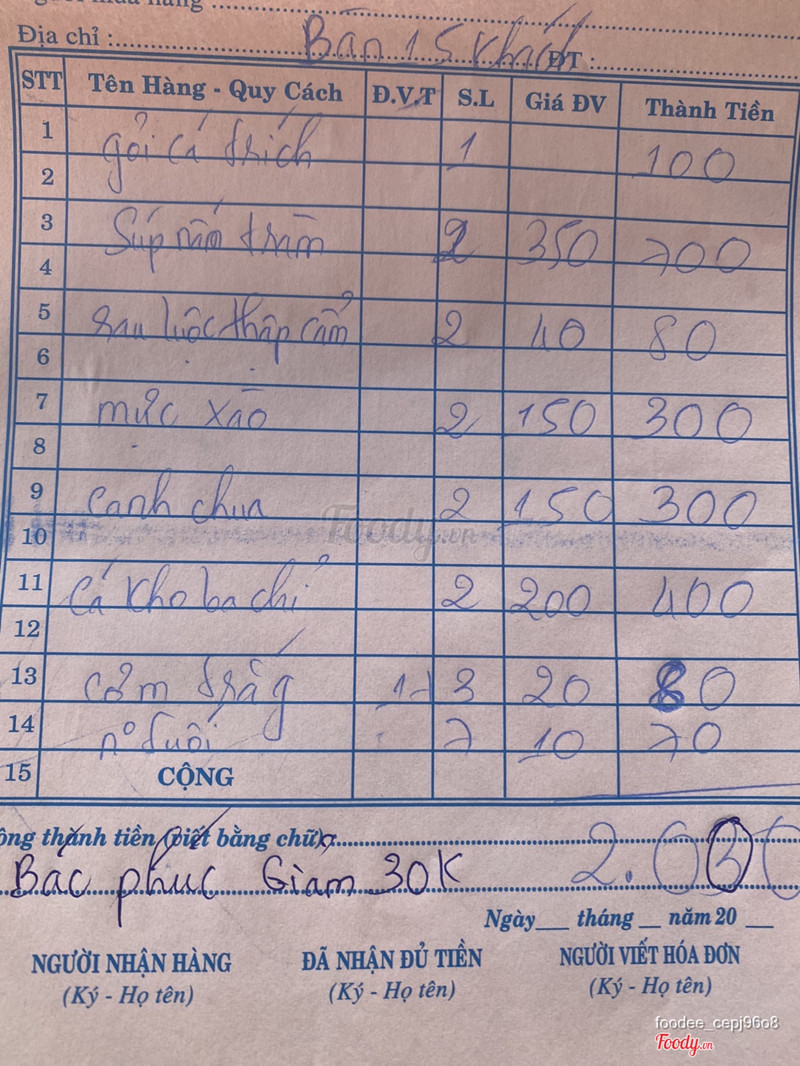 Địa chỉ : Bàn 15 khách ĐT :
STT Tên Hàng - Quy Cách Đ.V.T S.L Giá ĐV Thành Tiền
1 gỏi cá trích 1 100
2
3 Súp nấm tràm 2 350 700
4
5 rau luộc thập cẩm 2 40 80
6
7 mực xào 2 150 300
8
9 canh chua 2 150 300
10
11 cá kho ba chỉ 2 200 400
12
13 cơm trắg 3 20 80
14 nº suối 7 10 70
15 CỘNG
ộng thành tiền (viết bằng chữ):
Bác phúc Giảm 30K 2.0
Ngày___ tháng __ năm 20 __
NGƯỜI NHẬN HÀNG ĐÃ NHẬN ĐỦ TIỀN NGƯỜI VIẾT HÓA ĐƠN
(Ký - Họ tên) (Ký - Họ tên) (Ký - Họ tên)
Foody.vn
foodee_cepj96o8
Foody.vn